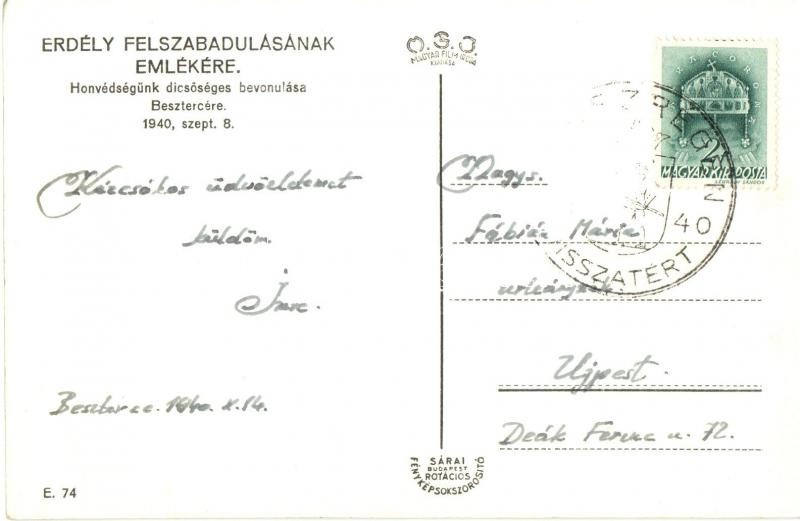 ERDÉLY FELSZABADULÁSÁNAK
EMLÉKÉRE.
Honvédségünk dicsőséges bevonulása
Besztercére.
1940, szept. 8.
Kézcsókos üdvözletemet
küldöm
Imre.
Beszterce. 1940. X. 14.
E. 74
O.G.J.
MAGYAR FILM IRODA
KIADÁSA
SÁRAI
BUDAPEST
ROTÁCIÓS
FÉNYKÉPSOKSZOROSÍTÓ
KORONA
2
MAGYAR KIR. POSTA
SZREGEN
40
VISSZATÉRT
Nagys.
Fábián Mária
urleánynak
Ujpest.
Deák Ferenc u. 72.